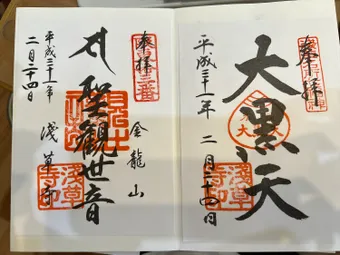 奉拝
大黒天
平成三十一年 二月二十四日
浅草寺印
奉拝
金龍山
聖観世音
浅草寺
平成三十一年
二月二十四日
浅草寺印